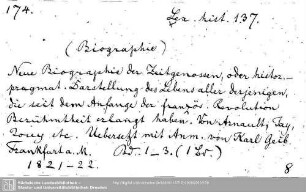 174.
Lex. hist. 137.
(Biographie)
Neue Biographie der Zeitgenossen, oder histor.-
pragmat. Darstellung des Lebens aller derjenigen,
die seit dem Anfange der französ. Revolution
Berühmtheit erlangt haben. Von Arnault, Jay,
Jouy etc. Uebersetzt mit Anm. von Karl Geib.
Frankfurt a. M. Bd. 1-3. (1 Bd.)
1821-22. 8